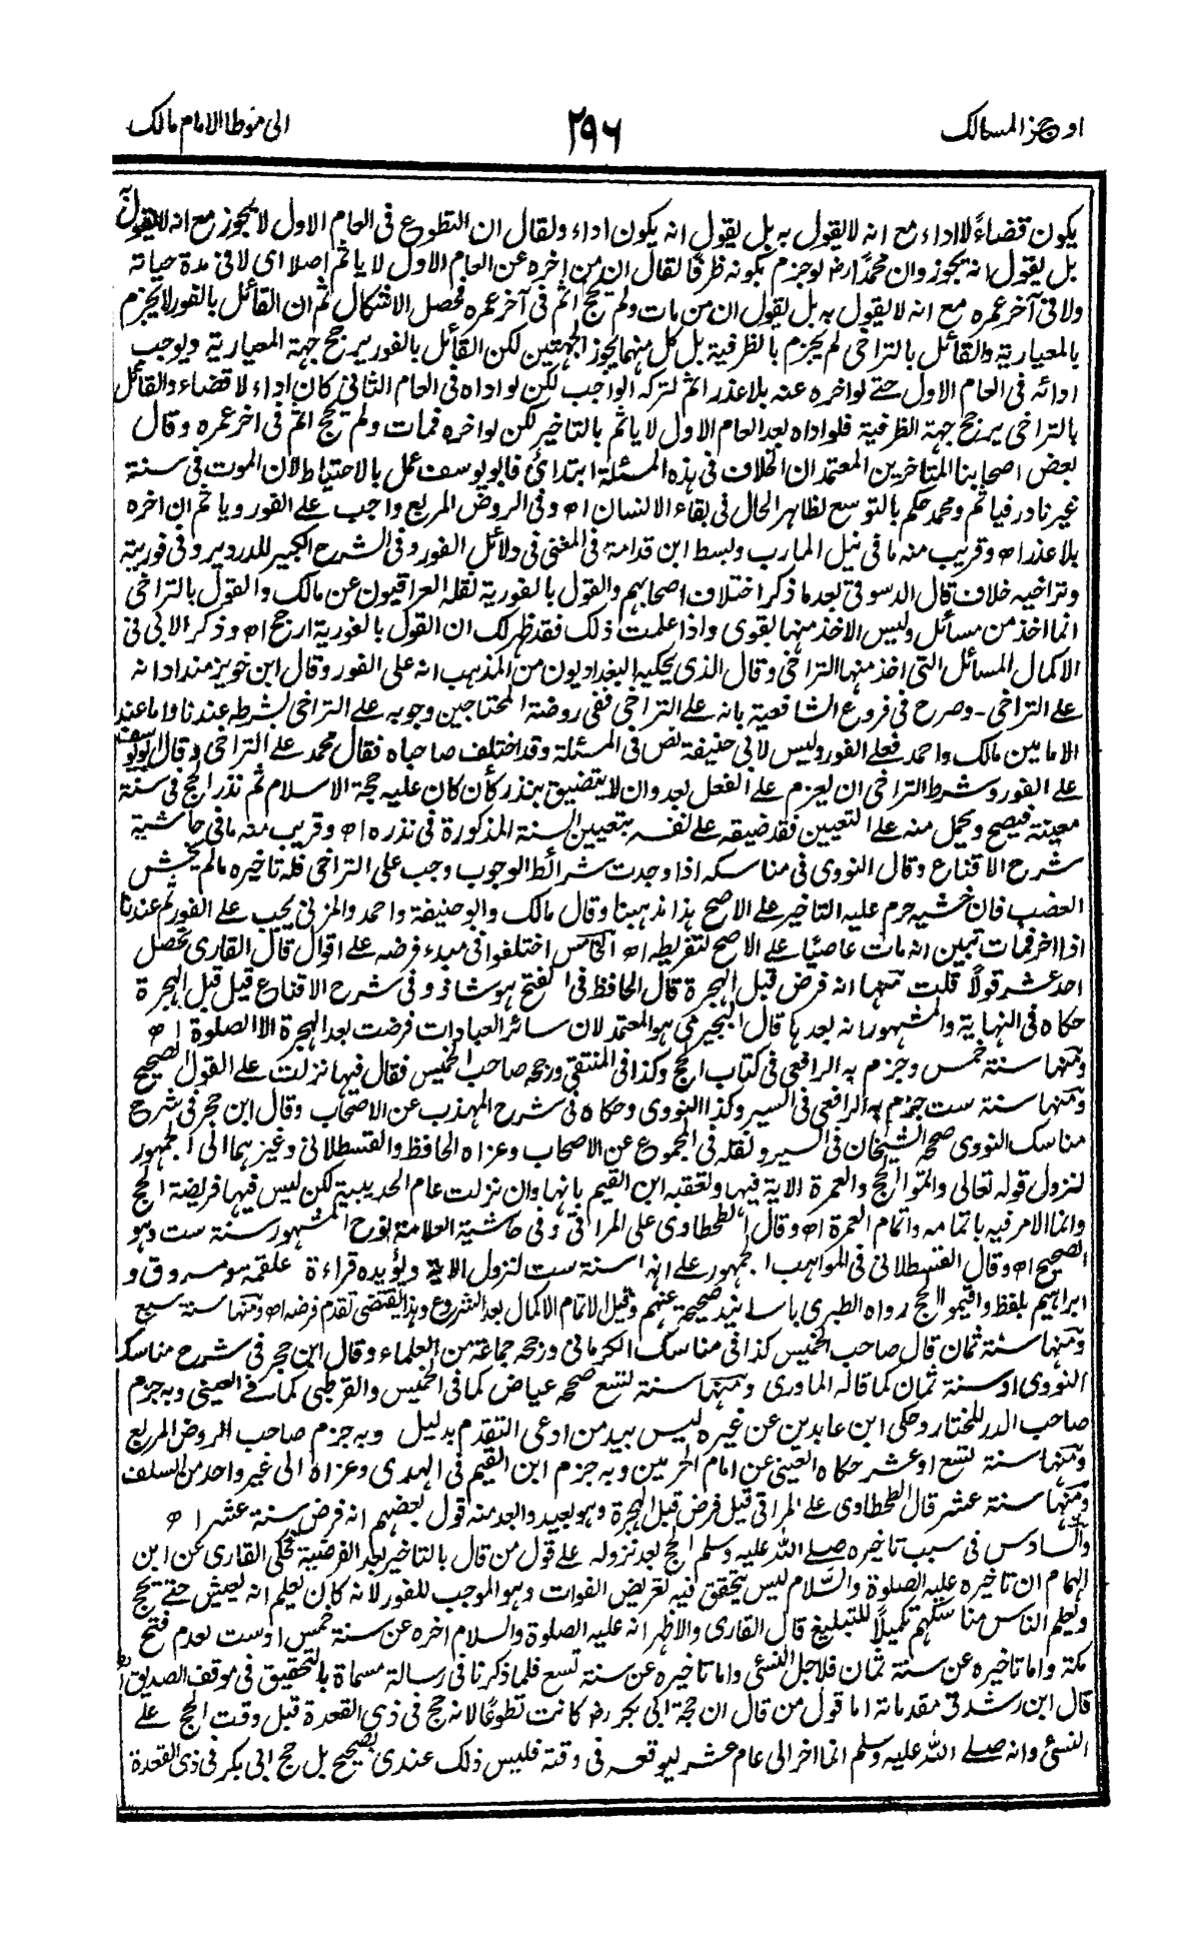 اوجز المسالك
٢٩٦
الى موطا الامام مالك
يكون قضاءً لا اداء مع انه لا يقول به بل يقول انه يكون اداء ولقال ان التطوع فى العام الاول لا يجوز مع انه لا يقول
بل يقول انه يجوز وان محمدًا رض لو جزم بكونه ظرفا لقال ان من اخره عن العام الاول لا ياثم اصلا اى لا فى مدة حياته
ولا فى آخر عمره مع انه لا يقول به بل يقول ان من مات ولم يحج اثم فى آخر عمره فحصل الاشكال ثم ان القائل بالفور لا يجزم
بالمعيارية والقائل بالتراخى لم يجزم بالظرفية بل كل منهما يجوز الجهتين لكن القائل بالفور يرجح جهة المعيارية ويوجب
ادائه فى العام الاول حتے لو اخره عنه بلا عذر اثم لتركه الواجب لكن لو اداه فى العام الثانى كان اداء لا قضاء والقائل
بالتراخى يرجح جهة الظرفية فلو اداه بعد العام الاول لا ياثم بالتاخير لكن لو اخره فمات ولم يحج اثم فى اخر عمره وقال
بعض اصحابنا المتاخرين المعتمد ان الخلاف فى هذه المسئلة ابتدائى فابو يوسف عمل بالاحتياط لان الموت فى سنة
غير نادر فياثم ومحمد حكم بالتوسع لظاهر الحال فى بقاء الانسان اھ وفى الروض المربع واجب علے الفور وياثم ان اخره
بلا عذر اھ وقريب منه ما فى نيل المارب وبسط ابن قدامة فى المغنى فى دلائل الفور وفى الشرح الكبير للدردير وفى فوريته
وتراخيه خلاف قال الدسوقى بعد ما ذكر اختلاف اصحابهم والقول بالفورية نقله العراقيون عن مالك والقول بالتراخى
انما اخذ من مسائل وليس الاخذ منها بقوى واذا علمت ذلك فقد ظهر لك ان القول بالفورية ارجح اھ وذكر الابى فى
الاكمال المسائل التى اخذ منها التراخى وقال الذى يحكيه البغداديون من المذهب انه على الفور وقال ابن خويز منداد انه
علے التراخى - وصرح فى فروع الشافعية بانه علے التراخى ففى روضة المحتاجين وجوبه علے التراخى بشرطه عندنا واما عند
الامامين مالك واحمد فعلے الفور وليس لابى حنيفة نص فى المسئلة وقد اختلف صاحباه فقال محمد علے التراخى وقال ابو يوسف
علے الفور وشرط التراخى ان يعزم علے الفعل بعد وان لا يتضيق بنذر كأن كان عليه حجة الاسلام ثم نذر الحج فى سنة
معينة فيصح ويحمل منه علے التعيين فقد ضيقه علے نفسه بتعيين السنة المذكورة فى نذره اھ وقريب منه ما فى حاشية
شرح الاقناع وقال النووى فى مناسكه اذا وجدت شرائط الوجوب وجب على التراخى فله تاخيره مالم يخش
العضب فان خشيه حرم عليه التاخير علے الاصح هذا مذهبنا وقال مالك وابو حنيفة واحمد والمزنى يجب علے الفور ثم عندنا
اذا اخر فمات تبين انه مات عاصيًا علے الاصح لتفريطه اھ الخامس اختلفوا فى مبدء فرضه علے اقوال قال القارى تحصل
احد عشر قولاً قلت منها انه فرض قبل الهجرة قال الحافظ فى الفتح هو شاذ وفى شرح الاقناع قيل قبل الهجرة
حكاه فى النهاية والمشهور انه بعدها قال البجيرمى هو المعتمد لان سائر العبادات فرضت بعد الهجرة الا الصلوة اھ
ومنها سنة خمس وجزم به الرافعى فى كتاب الحج وكذا فى المنتقى ورجحه صاحب الخميس فقال فيها نزلت علے القول الصحيح
ومنها سنة ست جزم به الرافعى فى السير وكذا النووى وحكاه فى شرح المهذب عن الاصحاب وقال ابن حجر فى شرح
مناسك النووى صححه الشيخان فى السير ونقله فى المجموع عن الاصحاب وعزاه الحافظ والقسطلانى وغيرهما الى الجمهور
لنزول قوله تعالى واتموا الحج والعمرة الاية فيها وتعقبه ابن القيم بانها وان نزلت عام الحديبية لكن ليس فيها فريضة الحج
وانما الامر فيه باتمامه واتمام العمرة اھ وقال الطحطاوى على المراقى وفى حاشية العلامة نوح المشهور سنة ست وهو
الصحيح اھ وقال القسطلانى فى المواهب الجمهور علے انها سنة ست لنزول الاية ويؤيده قراءة علقمة ومسروق و
ابراهيم بلفظ واقيموا الحج رواه الطبرى باسانيد صحيحة عنهم وقيل لاتمام الاكمال بعد الشروع وهذا يقتضى تقدم فرضه اھ ومنها سنة سبع
ومنها سنة ثمان قال صاحب الخميس كذا فى مناسك الكرمانى ورجحه جماعة من العلماء وقال ابن حجر فى شرح مناسك
النووى او سنة ثمان كما قاله الماوردى ومنها سنة تسع صححه عياض كما فى الخميس والقرطبى كما فے العينى وبه جزم
صاحب الدر المختار وحكى ابن عابدين عن غيره ليس بيد من ادعى التقدم بدليل وبه جزم صاحب الروض المربع
ومنها سنة تسع او عشر حكاه العينى عن امام الحرمين وبه جزم ابن القيم فى الهدى وعزاه الى غير واحد من السلف
ومنها سنة عشر قال الطحطاوى علے المراقى قيل فرض قبل الهجرة وهو بعيد وابعد منه قول بعضهم انه فرض سنة عشر اھ
والسادس فى سبب تاخيره صلے الله عليه وسلم الحج بعد نزوله علے قول من قال بالتاخير بعد الفرضية فحكى القارى عن ابن
الهمام ان تاخيره عليه الصلوة والسلام ليس يتحقق فيه تعريض الفوات وهو الموجب للفور لانه كان يعلم انه يعيش حتے يحج
ويعلم الناس مناسكهم تكميلاً للتبليغ قال القارى والاظهر انه عليه الصلوة والسلام اخره عن سنة خمس او ست لعدم فتح
مكة واما تاخيره عن سنة ثمان فلاجل النسئى واما تاخيره عن سنة تسع فلما ذكرنا فى رسالة مسماة بالتحقيق فى موقف الصديق اھ
قال ابن رشد فى مقدماته اما قول من قال ان حجة ابى بكر رض كانت تطوعًا لانه حج فى ذى القعدة قبل وقت الحج علے
النسئى وانه صلے الله عليه وسلم انما اخر الى عام عشر ليوقعه فى وقته فليس ذلك عندى بصحيح بل حج ابى بكر فى ذى القعدة